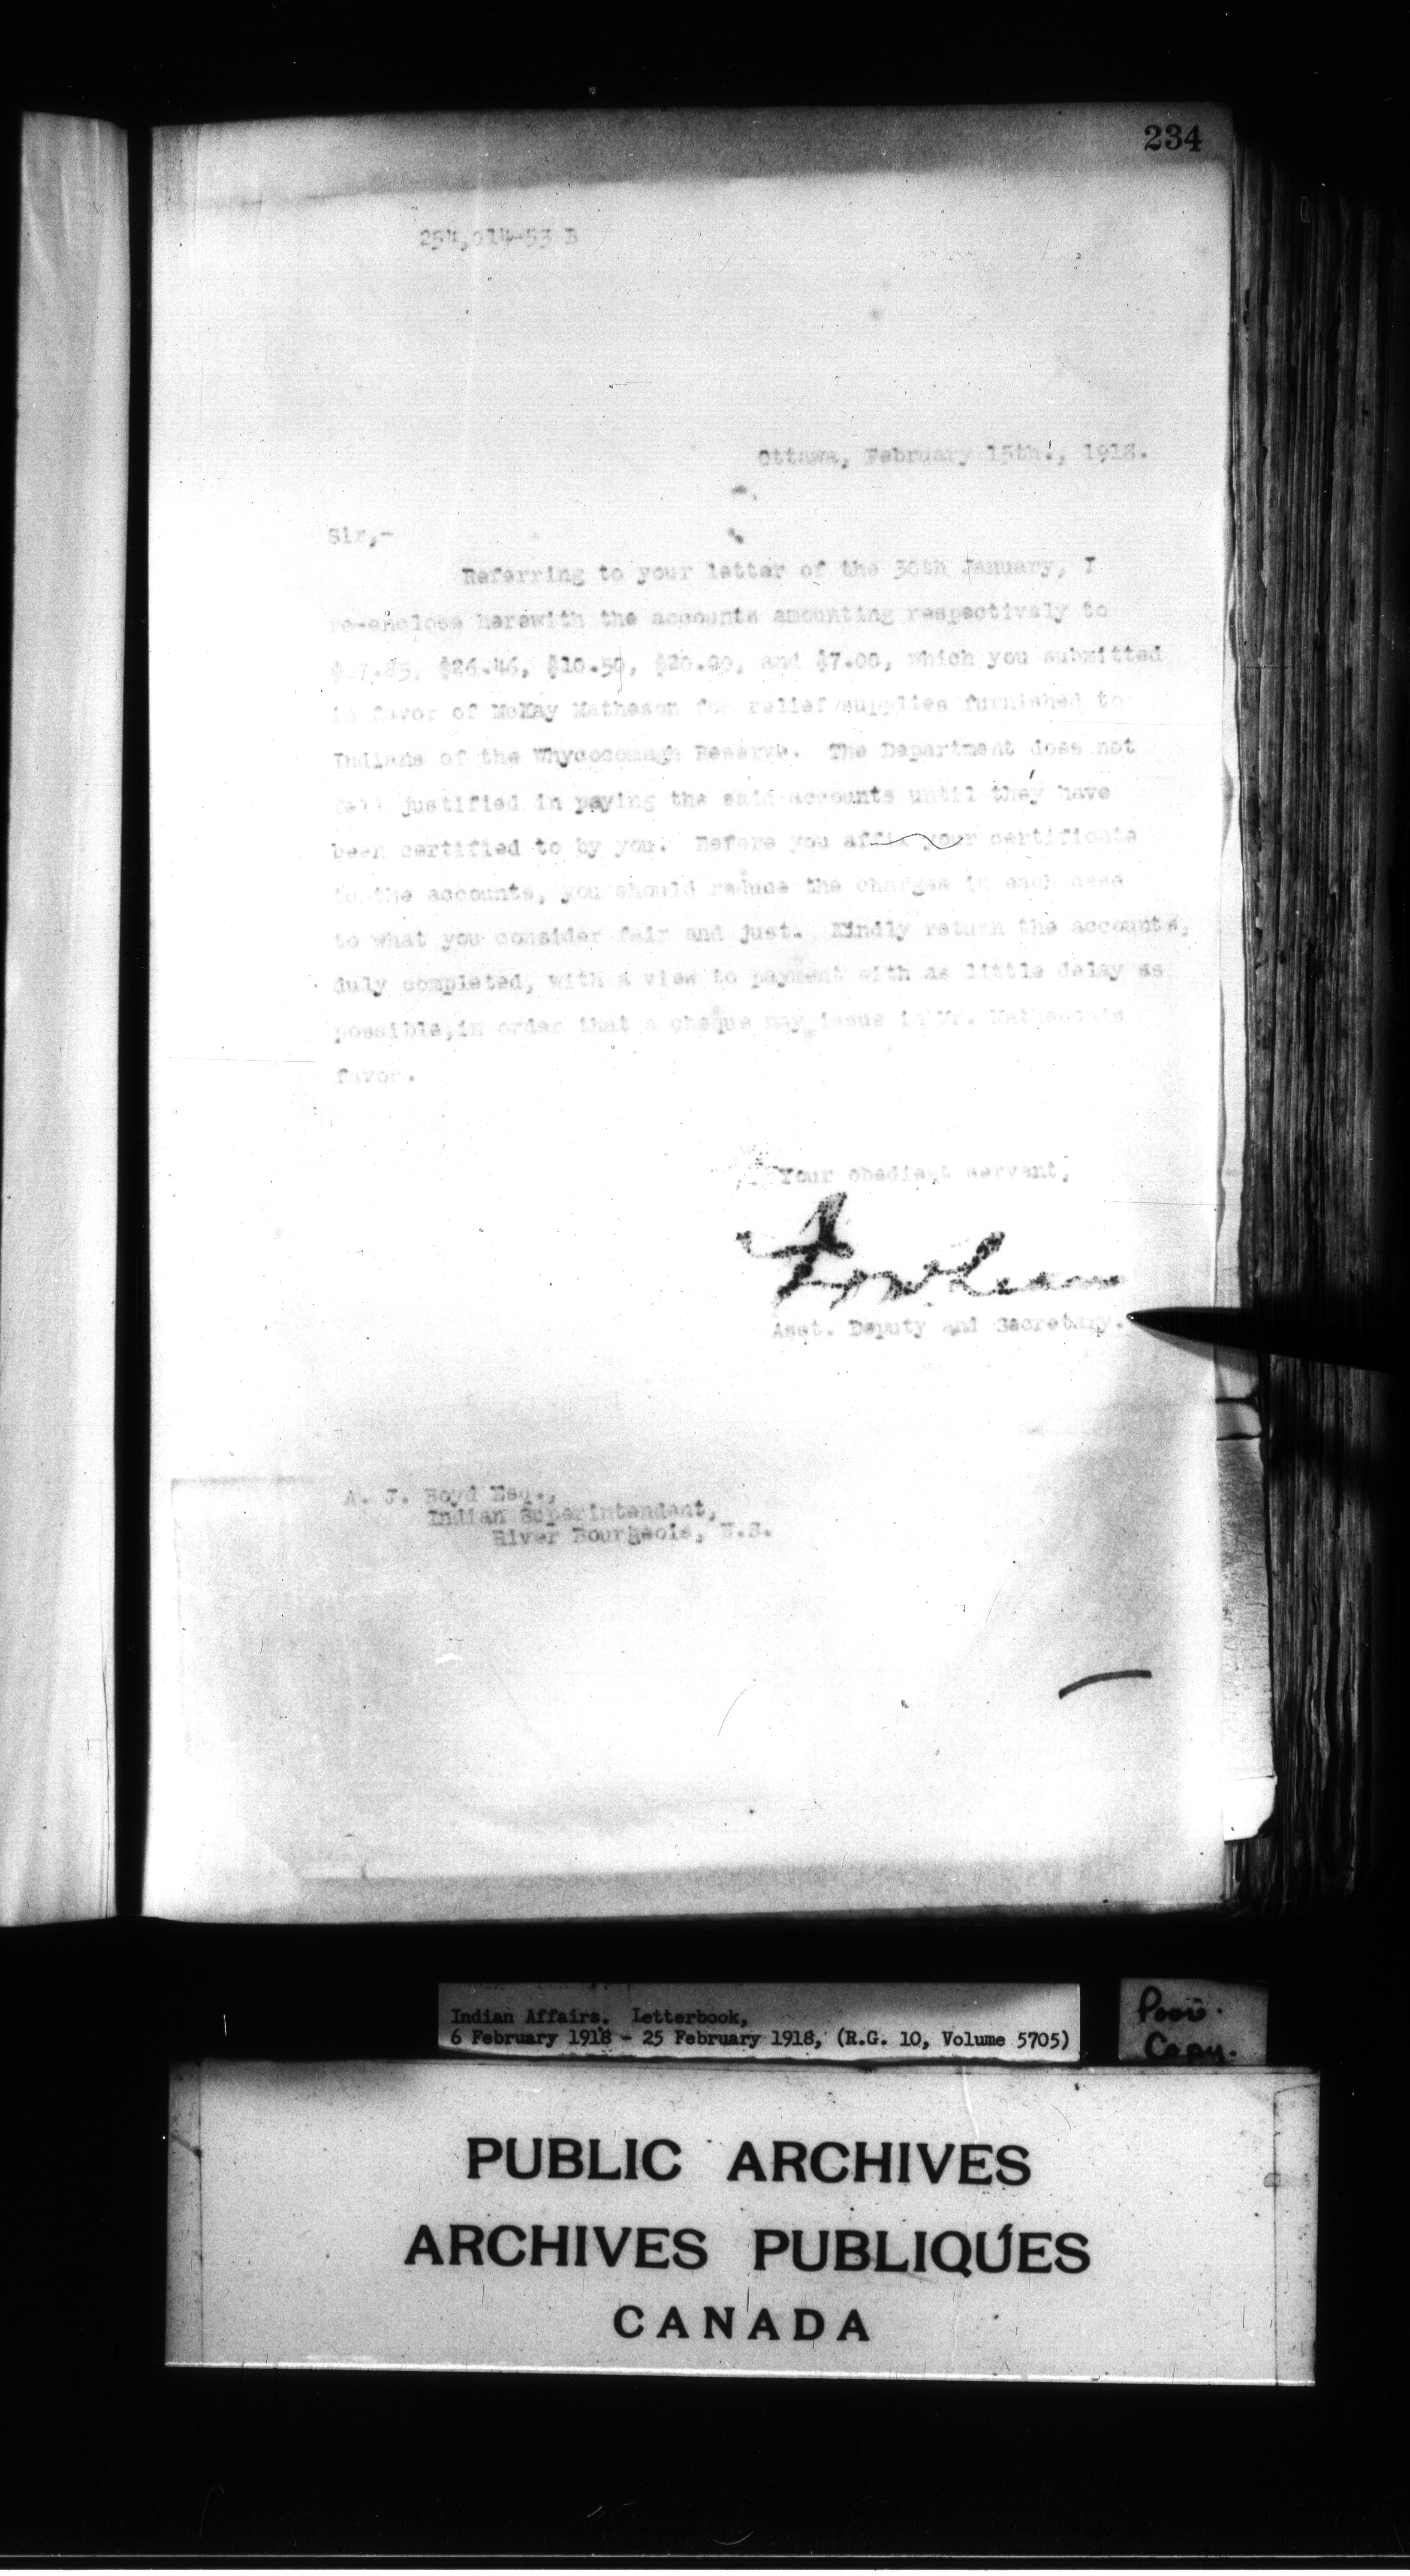 234
254,014-53 B
Ottawa, February 15th., 1918.
Sir,-
Referring to your letter of the 30th January, I
re-enclose herewith the accounts amounting respectively to
$26.46, $10.50, $20.00, and $7.00, which you submitted
in favor of McKay Matheson for relief supplies furnished to
Indians of the Whycocomagh Reserve. The Department does not
justified in paying the said accounts until they have
been certified to by you. Before you affix your certificate
to the accounts, you should reduce the charges in each case
to what you consider fair and just. Kindly return the accounts,
duly completed, with a view to payment with as little delay as
possible, in order that a cheque may issue in Mr. Matheson's
favor.
Your obedient servant,
Asst. Deputy and Secretary.
A. J. Boyd Esq.,
Indian Superintendent,
River Bourgeois, N.S.
Indian Affairs. Letterbook,
6 February 1918 - 25 February 1918, (R.G. 10, Volume 5705)
Poor
Copy.
PUBLIC ARCHIVES
ARCHIVES PUBLIQUES
CANADA